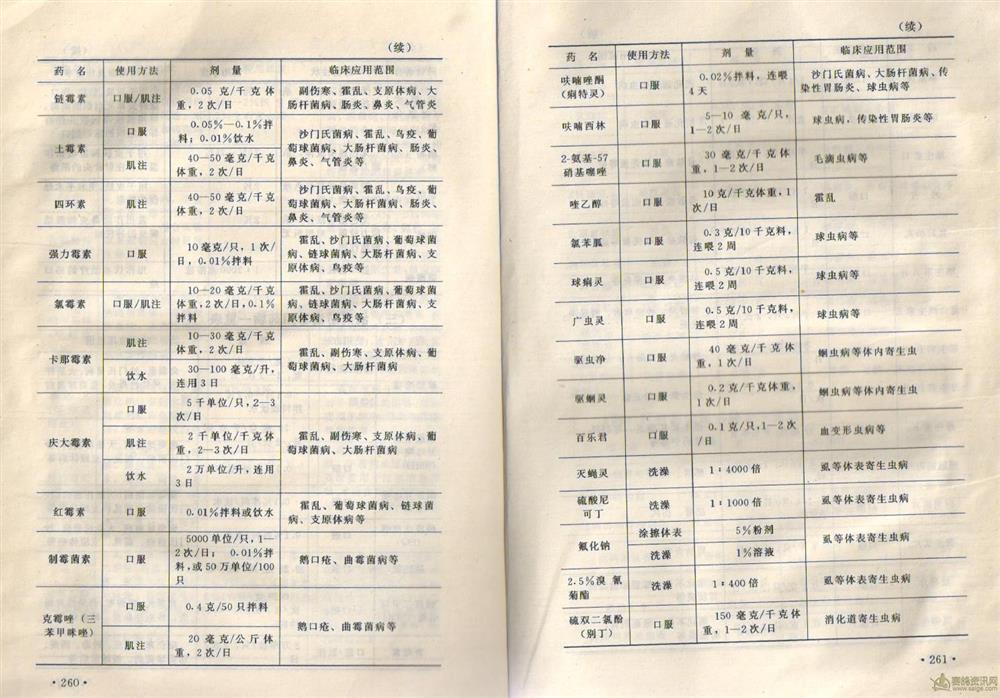 （续）
药 名 使用方法 剂 量 临床应用范围
链霉素 口服/肌注 0.05 克/千克体 副伤寒、霍乱、支原体病、大
重，2次/日 肠杆菌病、肠炎、鼻炎、气管炎
土霉素
口服 0.05%—0.1%拌
料；0.01%饮水
肌注 40—50 毫克/千克
体重，2次/日
沙门氏菌病、霍乱、鸟疫、葡
萄球菌病、大肠杆菌病、肠炎、
鼻炎、气管炎等
四环素 肌注 40—50 毫克/千克
体重，2次/日
沙门氏菌病、霍乱、鸟疫、葡
萄球菌病、大肠杆菌病、肠炎、
鼻炎、气管炎等
强力霉素 口服 10毫克/只，1次/
日，0.01%拌料
霍乱、沙门氏菌病、葡萄球菌
病、链球菌病、大肠杆菌病、支
原体病、鸟疫等
氯霉素 口服/肌注 10—20 毫克/千克
体重，2次/日，0.1%
拌料
霍乱、沙门氏菌病、葡萄球菌
病、链球菌病、大肠杆菌病、支
原体病、鸟疫等
卡那霉素
肌注 10—30 毫克/千克
体重，2次/日
饮水 30—100 毫克/升，
连用3日
霍乱、副伤寒、支原体病、葡
萄球菌病、大肠杆菌病
庆大霉素
口服 5千单位/只，2—3
次/日
肌注 2 千单位/千克体
重，2—3次/日
饮水 2万单位/升，连用
3日
霍乱、副伤寒、支原体病、葡
萄球菌病、大肠杆菌病
红霉素 口服 0.01%拌料或饮水
霍乱、葡萄球菌病、链球菌
病、支原体病等
制霉菌素 口服 5000单位/只，1—
2次/日； 0.01%拌
料，或50万单位/100
只
鹅口疮、曲霉菌病等
克霉唑（三
苯甲咪唑）
口服 0.4克/50只拌料
肌注 20 毫克/公斤体
重，2次/日
鹅口疮、曲霉菌病等
·260·
（续）
药 名 使用方法 剂 量 临床应用范围
呋喃唑酮
（痢特灵）
口服 0.02%拌料，连喂
4天
沙门氏菌病、大肠杆菌病、传
染性胃肠炎、球虫病等
呋喃西林 口服 5—10 毫克/只，
1—2次/日
球虫病，传染性胃肠炎等
2-氨基-57
硝基噻唑
口服 30 毫克/千克体
重，1—2次/日
毛滴虫病等
喹乙醇 口服 10克/千克体重，1
次/日
霍乱
氯苯胍 口服 0.3克/10千克料，
连喂2周
球虫病等
球痢灵 口服 0.5克/10千克料，
连喂2周
球虫病等
广虫灵 口服 0.5克/10千克料，
连喂2周
球虫病等
驱虫净 口服 40 毫克/千克体
重，1次/日
蛔虫病等体内寄生虫
驱蛔灵 口服 0.2克/千克体重，
1次/日
蛔虫病等体内寄生虫
百乐君 口服 0.1克/只，1—2次
/日
血变形虫病等
灭蝇灵 洗澡 1：4000倍 虱等体表寄生虫病
硫酸尼
可丁
洗澡 1：1000倍 虱等体表寄生虫病
氟化钠
涂擦体表 5%粉剂
洗澡 1%溶液
虱等体表寄生虫病
2.5%溴 氰
菊酯
洗澡 1：400倍 虱等体表寄生虫病
硫双二氯酚
（别丁）
口服 150 毫克/千克体
重，1—2次/日
消化道寄生虫病
·261·
赛鸽资讯网
www.saige.com